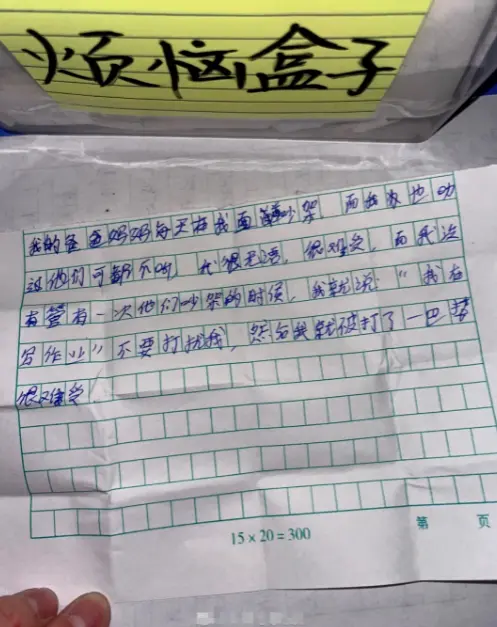 烦恼盒子
我的爸爸妈妈每天在我面前吵架,而我教也劝
过他们可都不听,我很无语,很难受,而我没
有管有一次他们吵架的时候,我就说:“我在
写作业”不要打扰我,然后我就被打了一巴掌
很难受
15×20=300
第 页